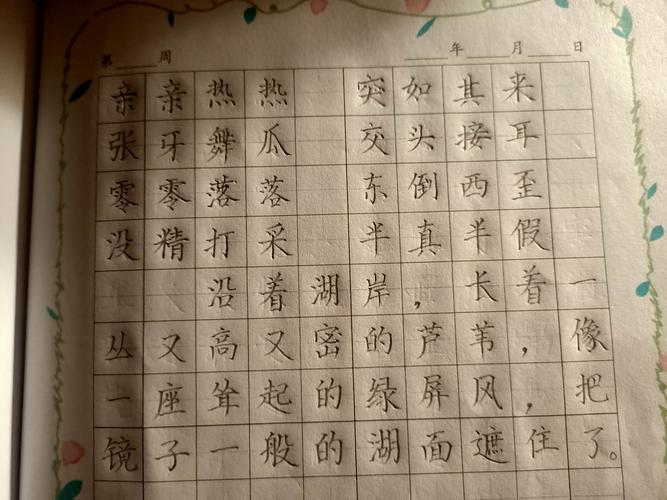 第 周 年 月 日
亲亲热热 突如其来
张牙舞瓜 交头接耳
零零落落 东倒西歪
没精打采 半真半假
沿着湖岸，长着一
丛又高又密的芦苇，像
一座耸起的绿屏风，把
镜子一般的湖面遮住了。